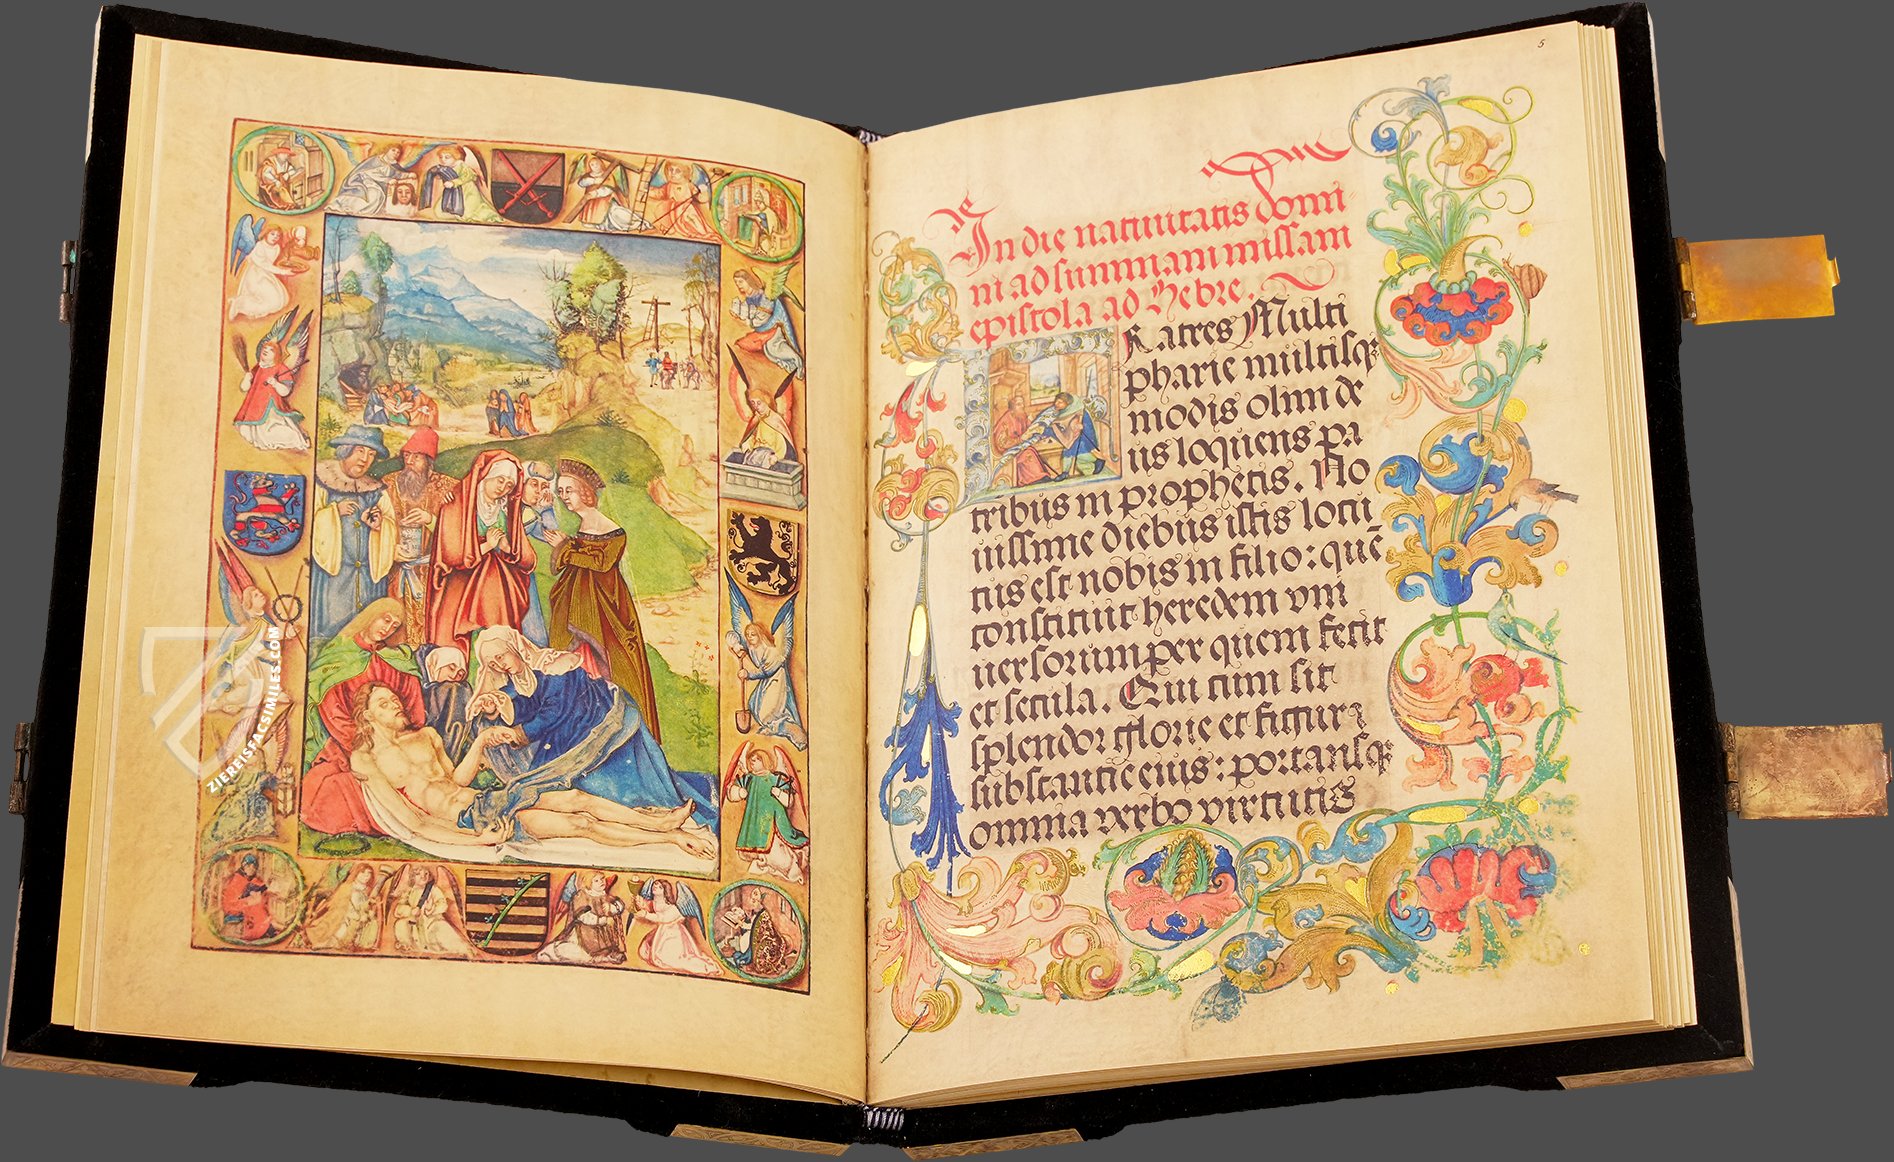 ZIEREISFACSIMILES.COM
5
In die natiuitatis domi-
ni ad summam missam
epistola ad Hebre.
Fratres Multi
pharie multisqʒ
modis olim de
us loquens pa
tribus in prophetis. No
uissime diebus istis locu
tus est nobis in filio: quē
constituit heredem vni
uersorum per quem fecit
et secula. Qui cum sit
splendor glorie et figura
substantie eius: portansqʒ
omnia verbo virtutis